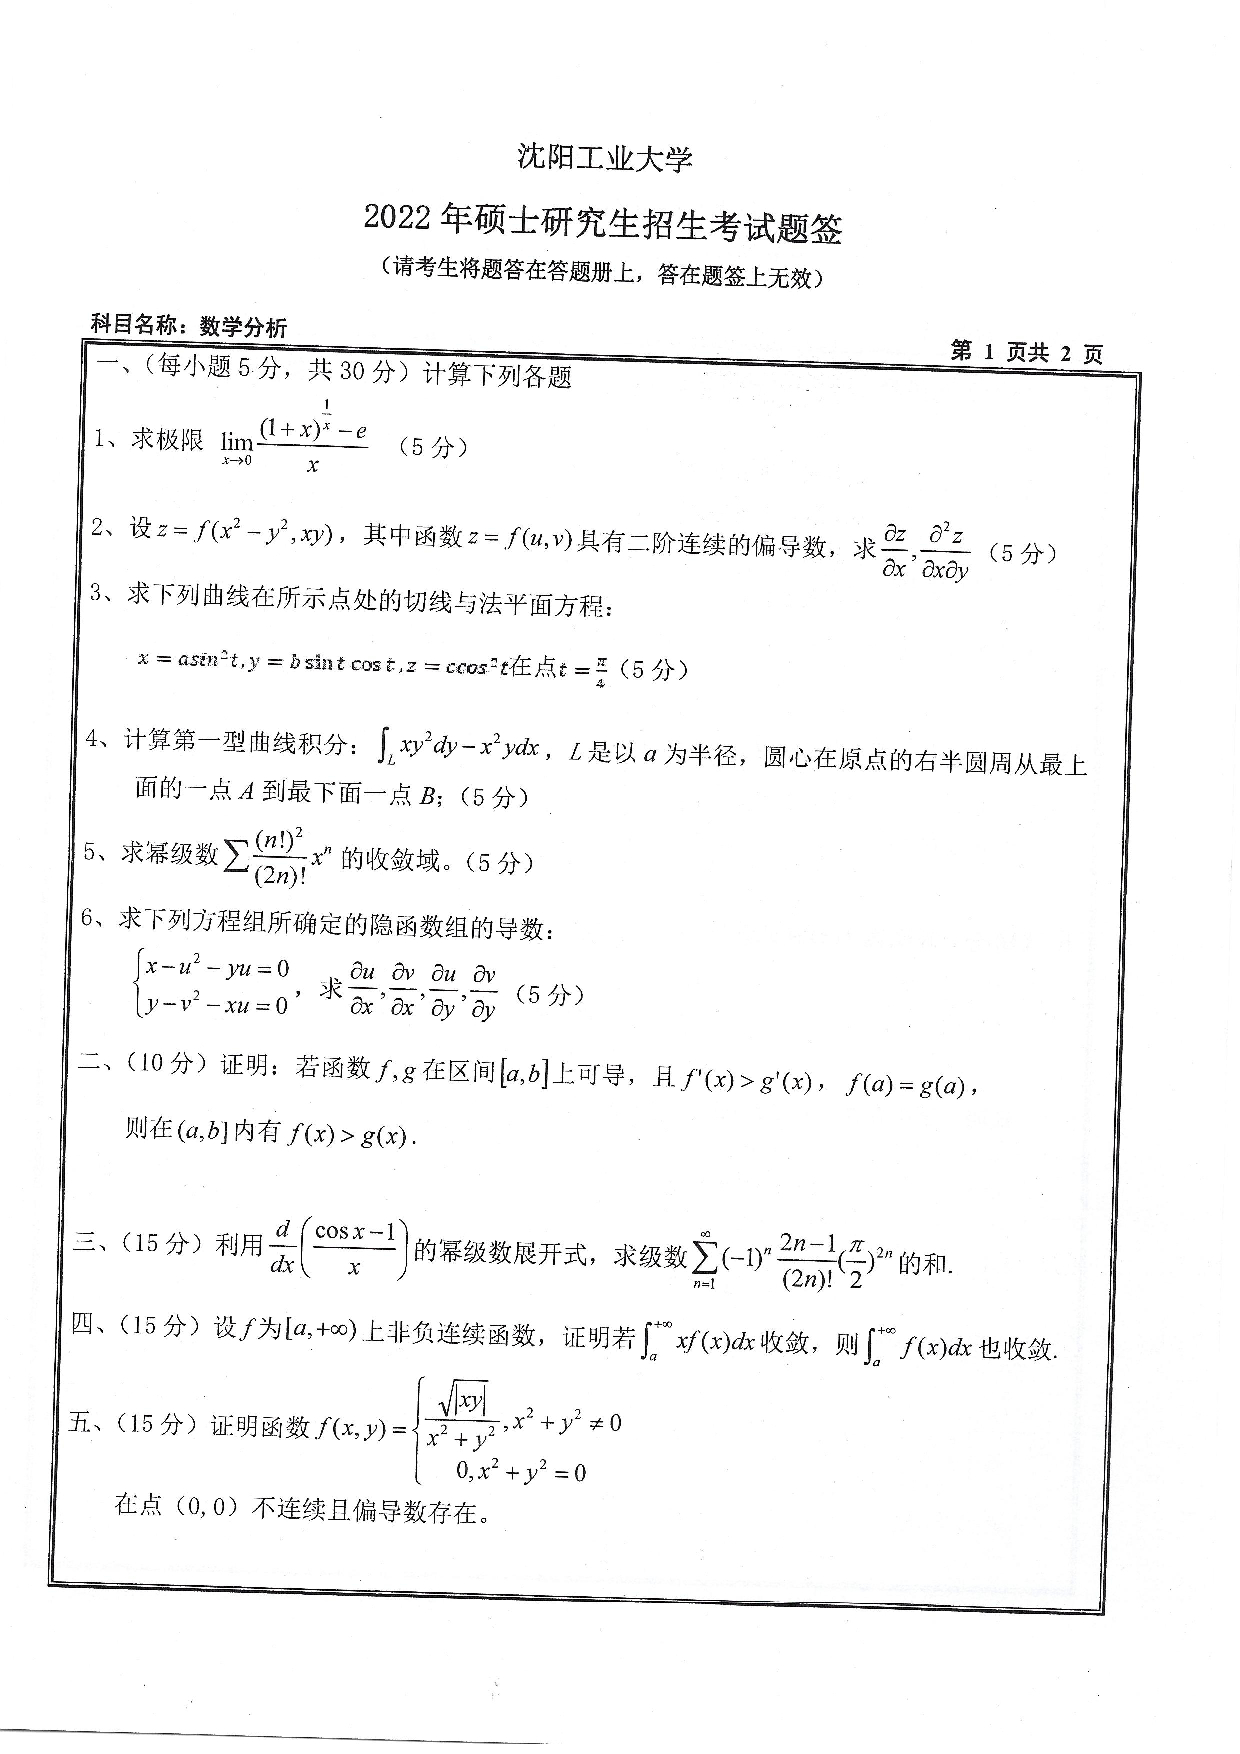 沈阳工业大学
2022 年硕士研究生招生考试题签
（请考生将题答在答题册上，答在题签上无效）
科目名称：数学分析
第 1 页共 2 页
一、（每小题 5 分，共 30 分）计算下列各题
1、求极限 $\lim_{x\to 0}\frac{(1+x)^{\frac{1}{x}}-e}{x}$ （5 分）
2、设 $z=f(x^2-y^2,xy)$，其中函数 $z=f(u,v)$ 具有二阶连续的偏导数，求 $\frac{\partial z}{\partial x},\frac{\partial^2 z}{\partial x\partial y}$ （5 分）
3、求下列曲线在所示点处的切线与法平面方程：
$x=a\sin^2 t,y=b\sin t\cos t,z=c\cos^2 t$ 在点 $t=\frac{\pi}{4}$（5 分）
4、计算第一型曲线积分：$\int_L xy^2dy-x^2ydx$，L 是以 a 为半径，圆心在原点的右半圆周从最上
面的一点 A 到最下面一点 B;（5 分）
5、求幂级数 $\sum\frac{(n!)^2}{(2n)!}x^n$ 的收敛域。（5 分）
6、求下列方程组所确定的隐函数组的导数：
$\begin{cases}x-u^2-yu=0\\y-v^2-xu=0\end{cases}$，求 $\frac{\partial u}{\partial x},\frac{\partial v}{\partial x},\frac{\partial u}{\partial y},\frac{\partial v}{\partial y}$（5 分）
二、（10 分）证明：若函数 $f,g$ 在区间 $[a,b]$ 上可导，且 $f'(x)>g'(x)$，$f(a)=g(a)$，
则在 $(a,b]$ 内有 $f(x)>g(x)$.
三、（15 分）利用 $\frac{d}{dx}\left(\frac{\cos x-1}{x}\right)$ 的幂级数展开式，求级数 $\sum_{n=1}^{\infty}(-1)^n\frac{2n-1}{(2n)!}(\frac{\pi}{2})^{2n}$ 的和.
四、（15 分）设 f 为 $[a,+\infty)$ 上非负连续函数，证明若 $\int_a^{+\infty}xf(x)dx$ 收敛，则 $\int_a^{+\infty}f(x)dx$ 也收敛.
五、（15 分）证明函数 $f(x,y)=\begin{cases}\frac{\sqrt{|xy|}}{x^2+y^2},x^2+y^2\neq 0\\0,x^2+y^2=0\end{cases}$
在点（0,0）不连续且偏导数存在。